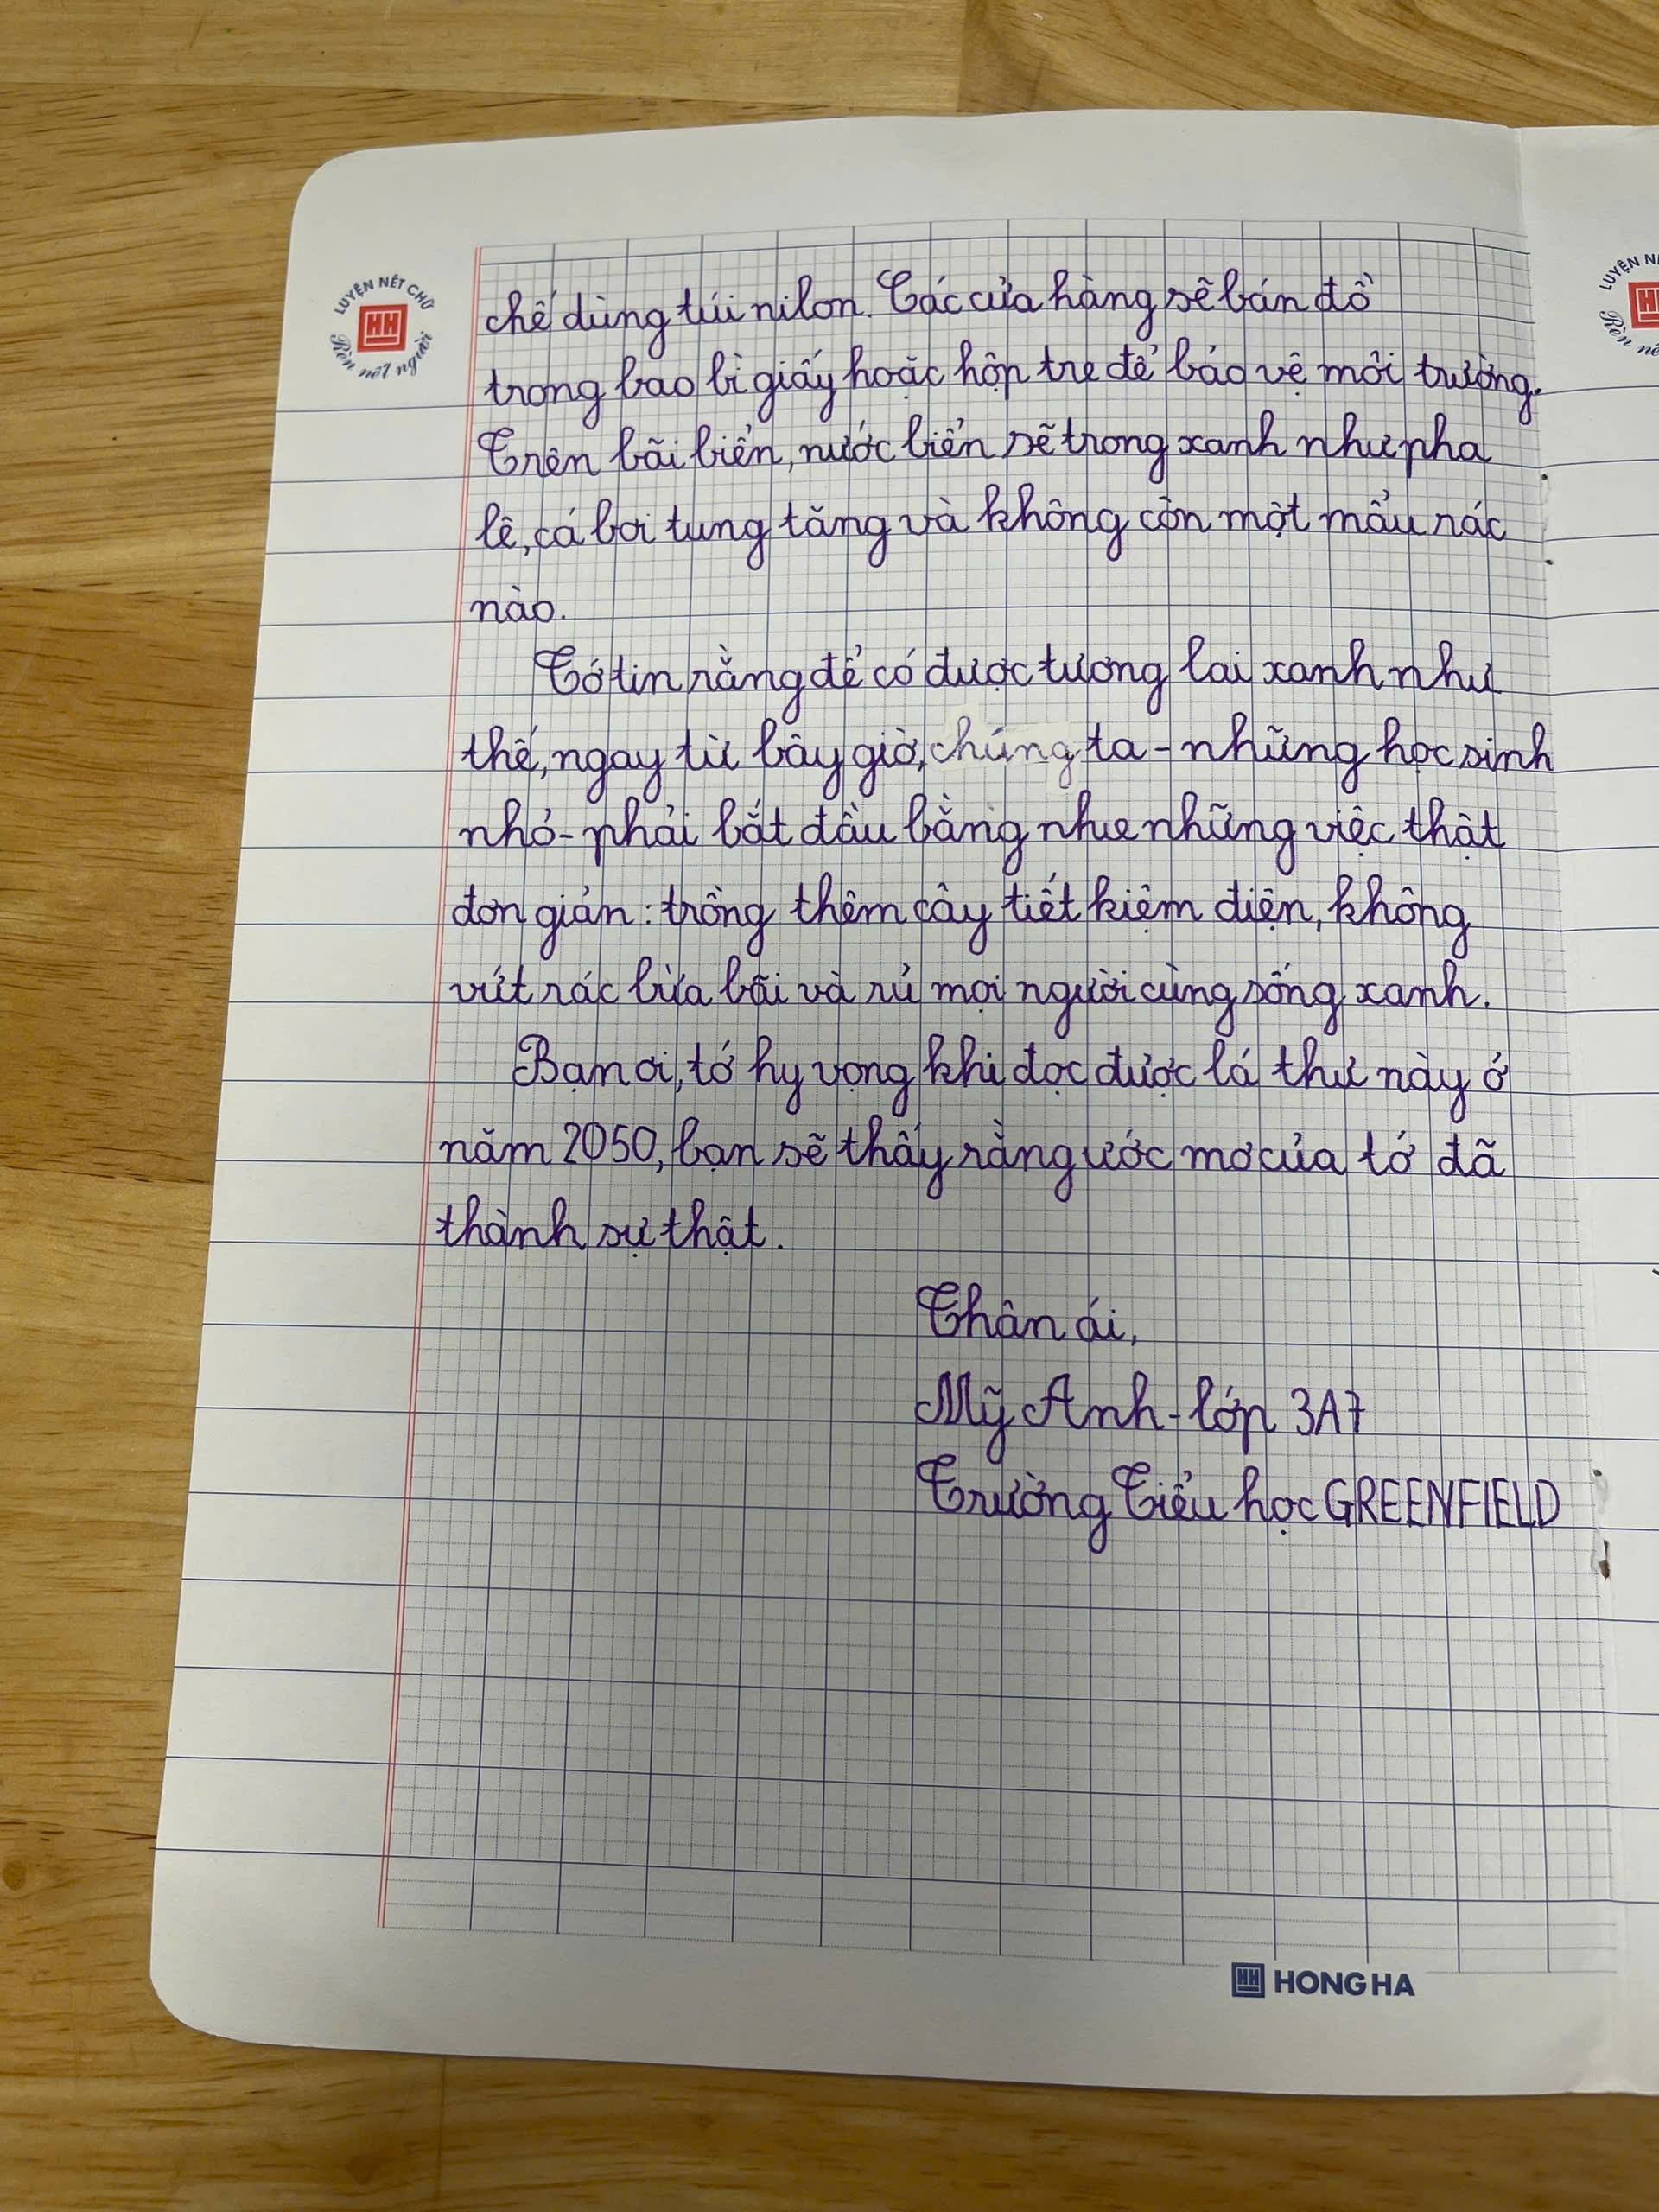 LUYỆN NÉT CHỮ
HH
Rèn nết người
chế dùng túi nilon. Các cửa hàng sẽ bán đồ
trong bao bì giấy hoặc hộp tre để bảo vệ môi trường.
Trên bãi biển, nước biển sẽ trong xanh như pha
lê, cá bơi tung tăng và không còn một mẩu rác
nào.
Tớ tin rằng để có được tương lai xanh như
thế, ngay từ bây giờ, chúng ta - những học sinh
nhỏ - phải bắt đầu bằng nhưe những việc thật
đơn giản: trồng thêm cây tiết kiệm điện, không
vứt rác bừa bãi và rủ mọi người cùng sống xanh.
Bạn ơi, tớ hy vọng khi đọc được lá thư này ở
năm 2050, bạn sẽ thấy rằng ước mơ của tớ đã
thành sự thật.
Thân ái,
Mỹ Anh - lớp 3A7
Trường Tiểu học GREENFIELD
HH HONG HA